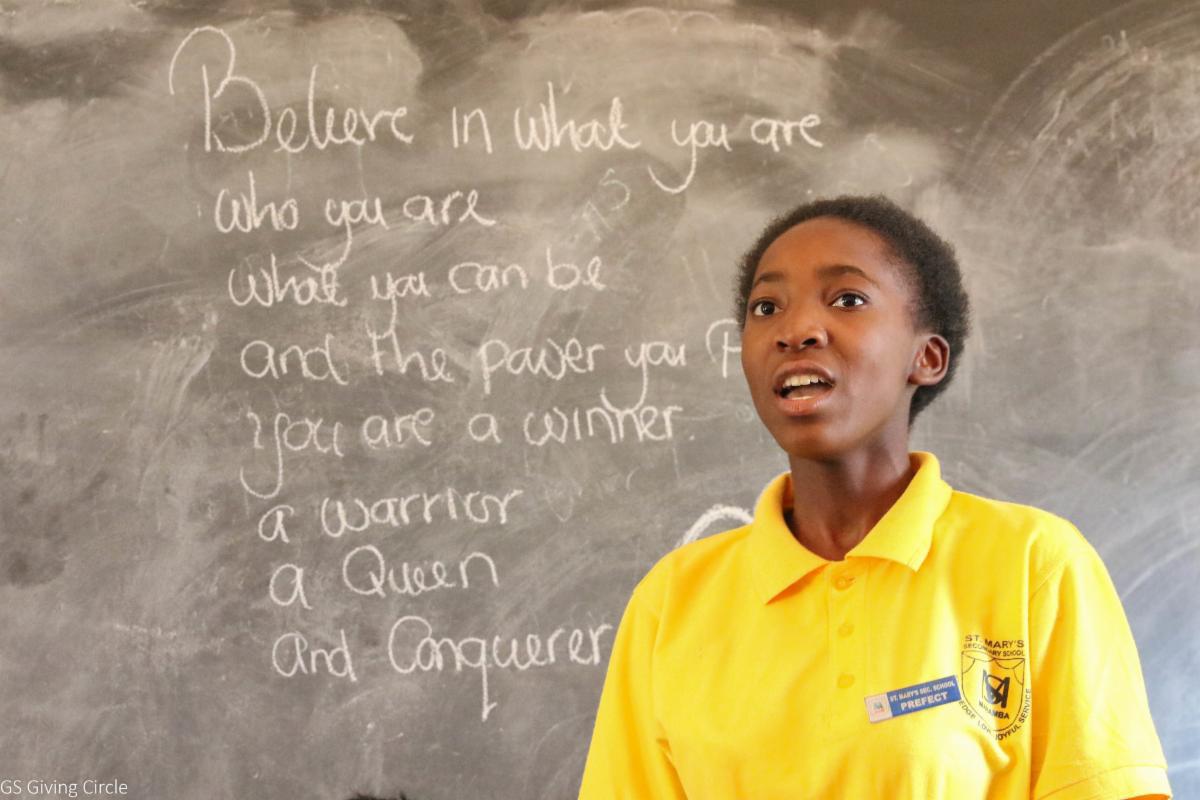 Believe in what you are
who you are
what you can be
and the power you
You are a winner.
a warrior
a Queen
and Conquerer
ST. MARY'S
SECONDARY SCHOOL
ST. MARY'S SEC. SCHOOL
PREFECT
JOYFUL SERVICE
GS Giving Circle